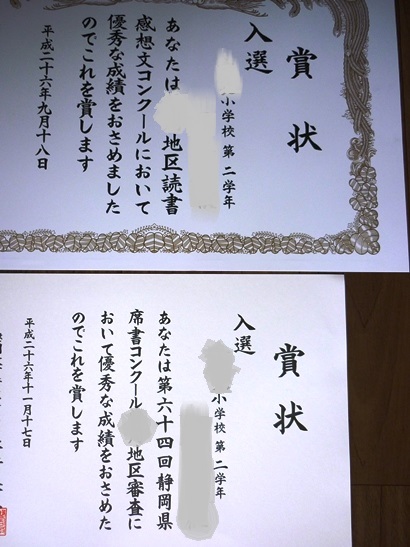 賞状
入選
小学校 第二学年
あなたは
地区読書
感想文コンクールにおいて
優秀な成績をおさめました
のでこれを賞します
平成二十六年九月十八日
賞状
入選
小学校 第二学年
あなたは第六十四回静岡県
席書コンクール
地区審査に
おいて優秀な成績をおさめた
のでこれを賞します
平成二十六年十一月十七日